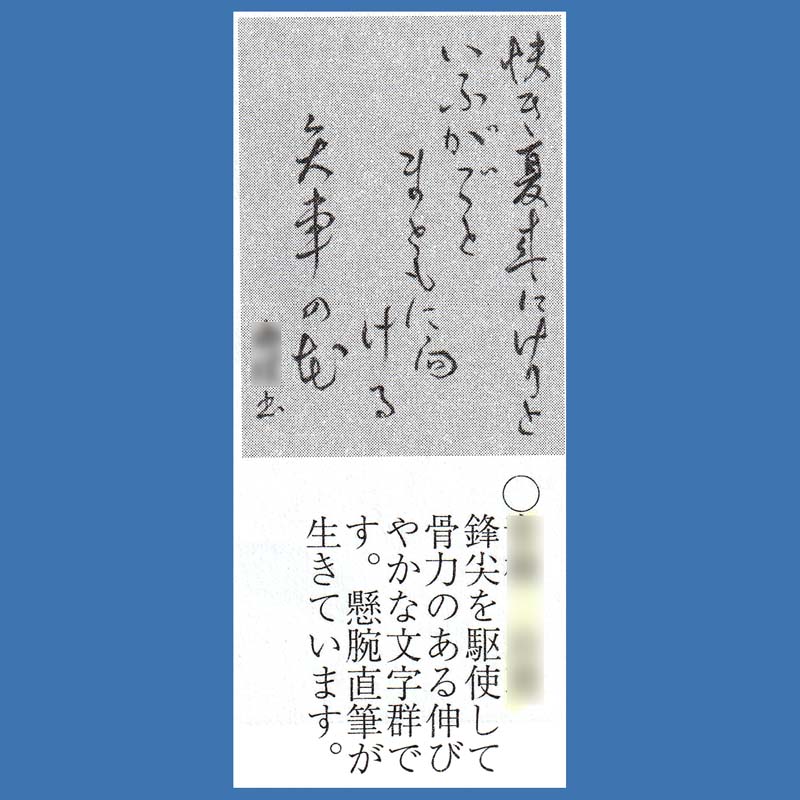 快き夏来にけりと
いふがごと
まともに向
ける
矢車の花
書
○
鋒尖を駆使して
骨力のある伸び
やかな文字群で
す。懸腕直筆が
生きています。